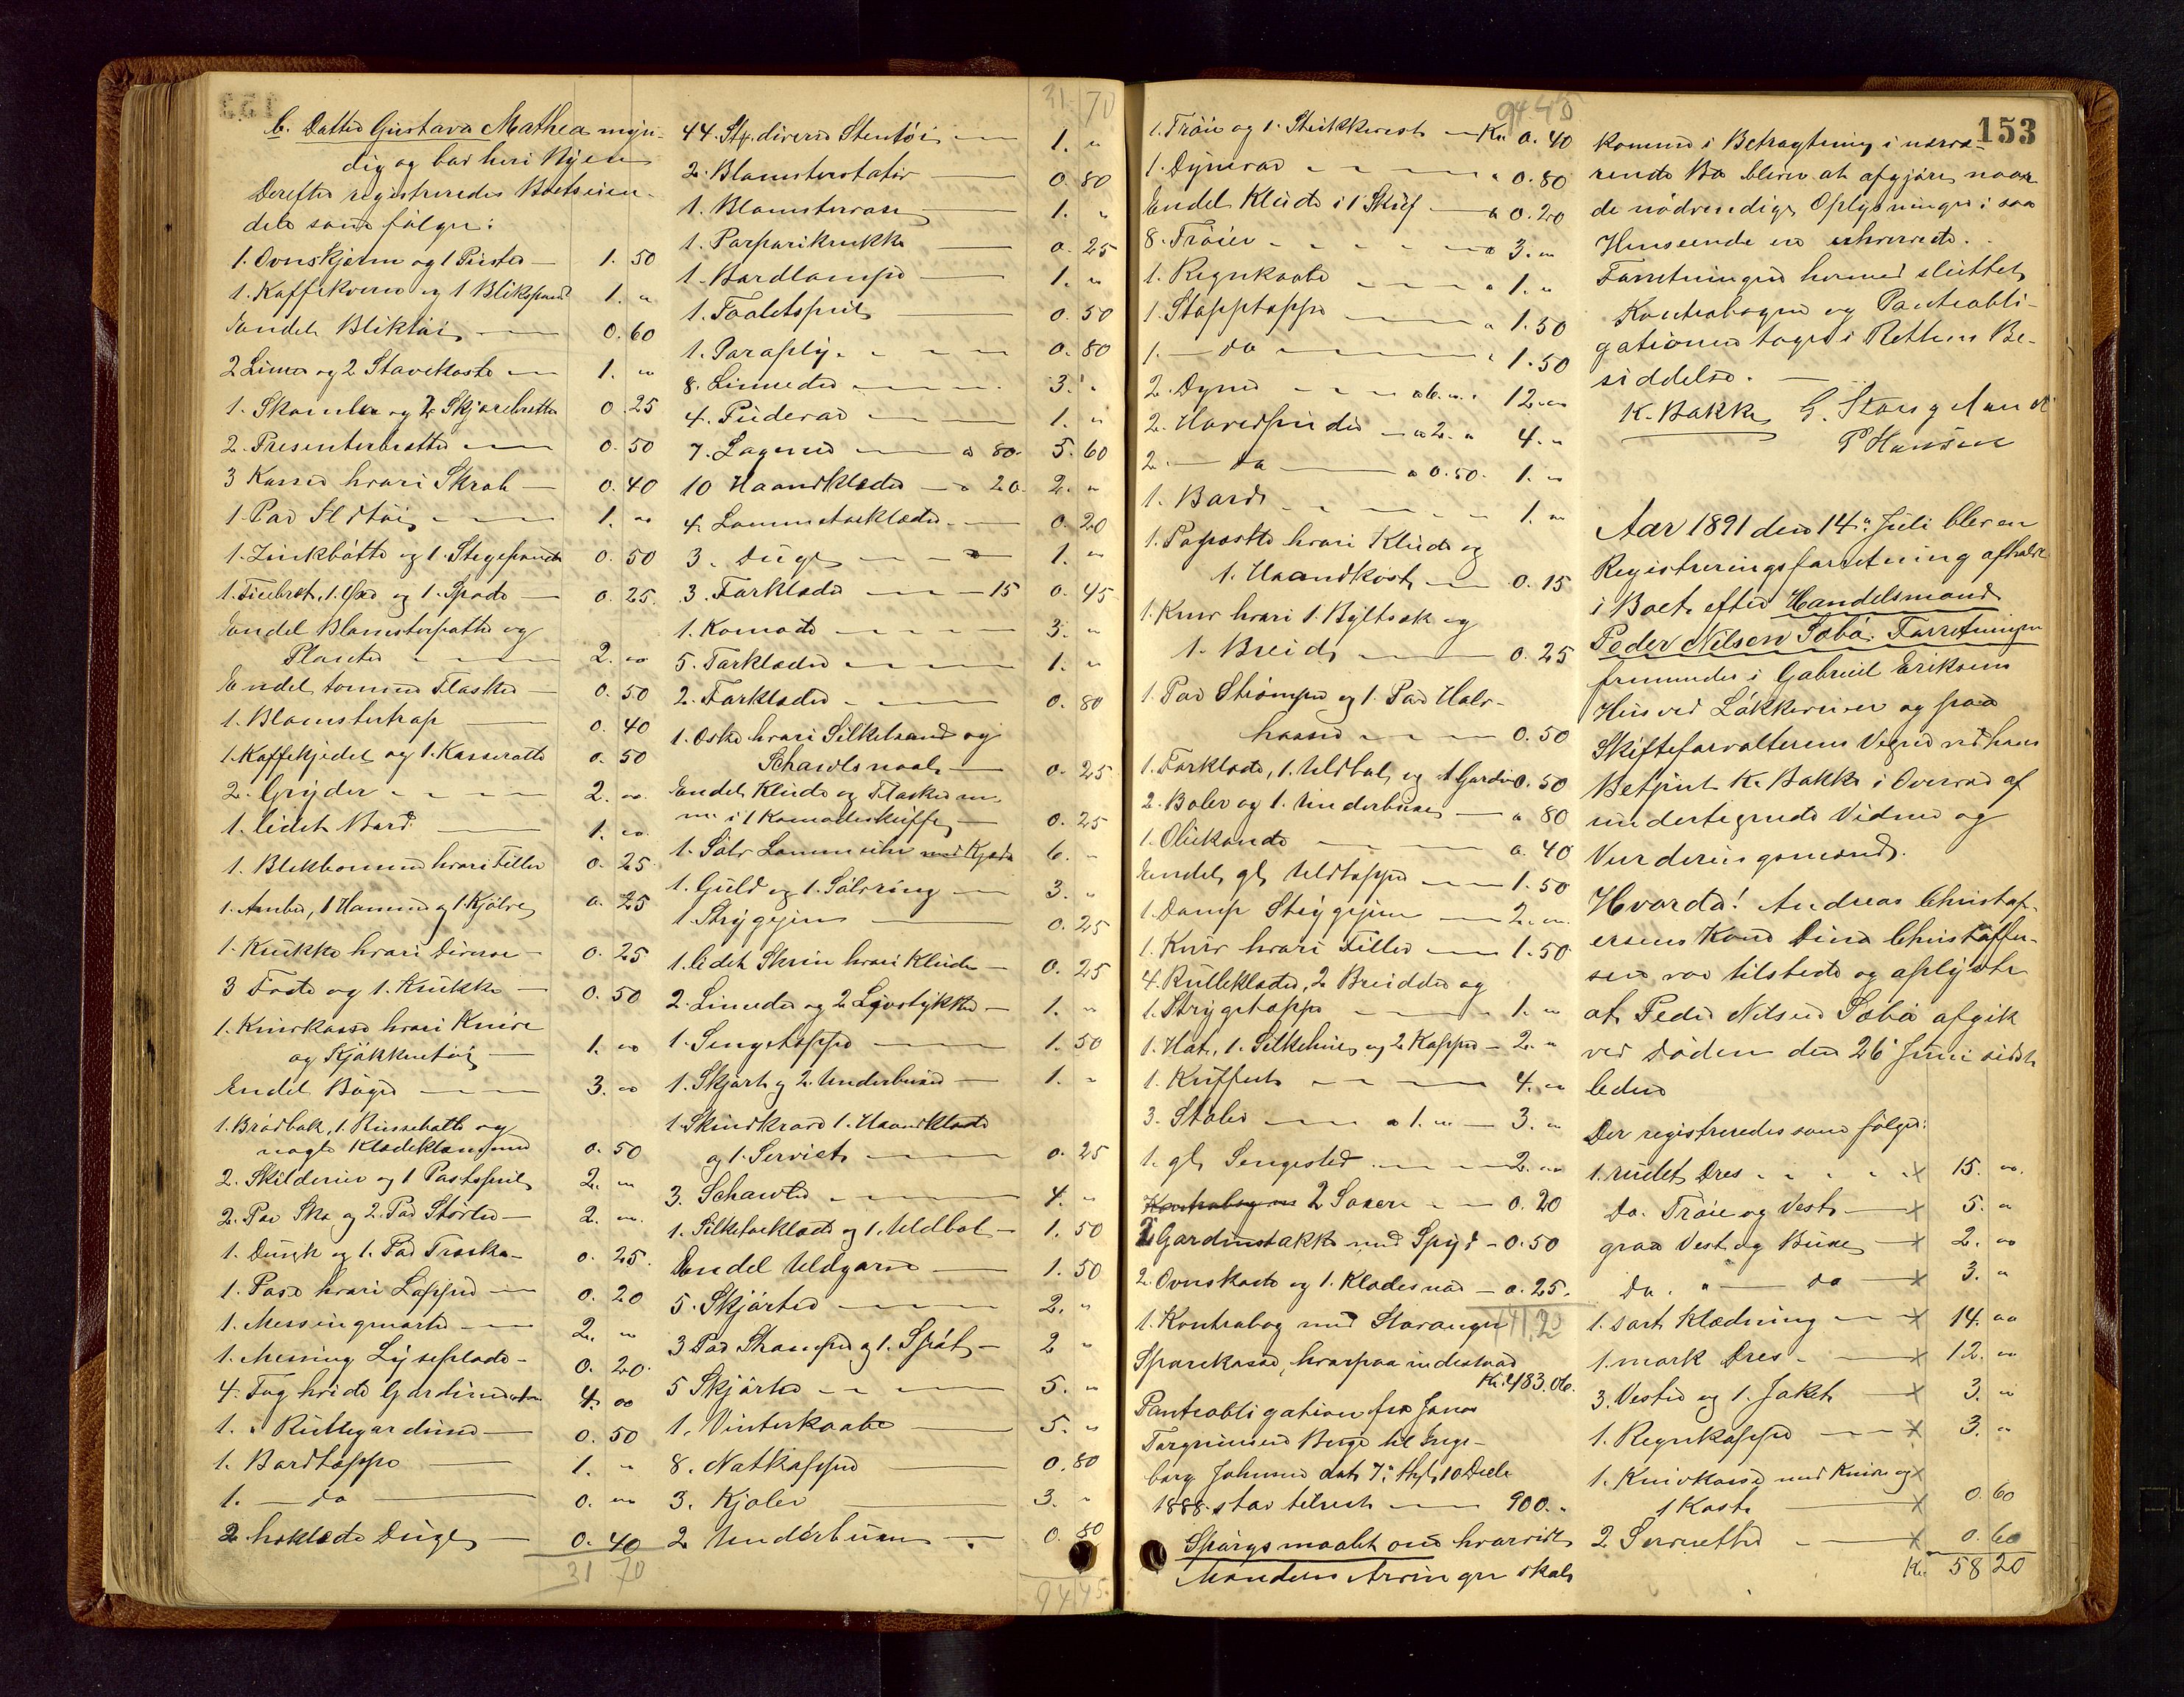 C. Datter Gustava Mathea myn-
dig og bor her i Byen
Derefter registreredes Boets eien-
dele som følger:
1. Ovnskjerm og 1 Puster — 1. 50
1. Kaffekvern og 1 Blikspand 1. "
Endel Bliktøi — 0. 60
2 Limer og 2 Stavekoste — 1. "
1. Skamler og 2 Skjærebretter 0. 25
2. Presenterbretter — 0. 50
3 Kasser hvori Skrab — 0. 40
1. Par Ildtøi — 1. "
1. Zinkbøtte og 1. Stegepande 0. 50
1. Øxe og 1. Spade — 0. 25.
Endel Blomsterpotter og
Planter — 2. "
Endel tomme Flasker — 0. 50
1. Blomstertrap — 0. 40
1. Kaffekjedel og 1. Kasserolle 0. 50
2. Gryder — 2. "
1. lidet Bord — 1. "
1. Blikbomme hvori Filler 0. 25.
1. Ambu, 1 Hammer og 1. Kjølve 0. 25
1. Krukke hvori Diverse — 0. 25
3 Fade og 1. Krukke — 0. 50
1. Knivkasse hvori Knive
og Kjøkkentøi — 1. "
Endel Bøger — 3. "
1. Brødbak, 1. Russehatte og
nogle Klædeklemmer 0. 50
2. Skilderier og 1 Portspeil 2. "
2. Par Sko og 2. Par Støvler — 2. "
1. Dunk og 1. Par Træsko — 0. 25.
1. Pose hvori Lapper — 0. 20
1. Messingmorter — 2. "
1. Messing Lyseplade — 0. 20.
4. Fag hvide Gardiner 4. "
1. " Rullegardiner — 0. 50
1. Bordtæppe — 1. "
1. — do — 0. "
2 heklede Duge — 0. 40
31 70
31. 70
44. Stk. diverse Stentøi — 1. "
2. Blomsterstativ — 0. 80
1. Blomstervase — 1. "
1. Parparikrukke — 0. 25
1. Bordlampe — 1. "
1. Toiletspeil — 0. 50
1. Paraply — 0. 80
8. Linneder — 3. "
4. Pudevar — 1. "
7. Lagener — a 80. 5. 60
10 Haandklæder — a 20. 2. "
4. Lommetørklæder — 0. 20
3. Duge — 1. "
3. Forklæder — 15 0. 45
1. Komode — 3. "
5. Forklæder — 1. "
2. Forklæder — 0. 80
1. Æske hvori Silkebaand og
Schawlsnaal — 0. 25
Endel Klude og Flasker m.
m. i 1 Komodeskuffe — 0. 25
1. Sølv Lommeuhr med Kjæde 6. "
1. Guld og 1. Sølvring — 3. "
1 Strygejern — 0. 25
1. lidet Skrin hvori Klude — 0. 25
2. Linneder og 2 Livstykker — 1. "
1. Sengetæppe — 1. 50
1. Skjørt og 2. Underbuxer — 1. "
1. Skindkrave 1. Haandklæde
og 1. Serviet — 0. 25
3. Schawler — 4. "
1. Silketørklæde og 1. Uldbol — 1. 50
Endel Uldgarn — 1. 50
5. Skjørter — 2. "
3 Par Strømper og 1. Sjøl — 2 "
5 Skjørter — 5. "
1. Vinterkaabe — 5. "
8. Natkapper — 0. 80
3. Kjoler — 3. "
2 Underbuxer — 0. 80
94 45
94.45
1. Trøie og 1. Strikkevest — Kr. 0. 40
1. Dynevar — " 0. 80
Endel Klude i 1 Skuf — " 0. 20
8. Trøier — " 3. "
1. Regnkaabe — " 1. "
1. Stoptæppe — " 1. 50
1. — do — " 1. 50
2. Dyner — a 6. " " 12. "
2. Hovedpuder — a 2. " 4. "
2. — do — a 0. 50. 1. "
1. Bord — 1. "
1. Papæske hvori Klude og
1. Haandkost — 0. 15
1. Kurv hvori 1. Byltsæk og
1. Breid — 0. 25
1. Par Strømper og 1. Par Halv-
hoser — 0. 50
1. Forklæde, 1. Uldbol og 1 Gardin 0. 50
2. Boler og 1. Underbuxe — " 80
1. Oliekande — 0. 40
Endel gl. Uldtæpper — 1. 50
1. Damp Strygejern — 2. "
1. Kurv hvori Filler — 1. 50
4. Rulleklæder, 2 Breidder og
1. Strygetæppe — 1. "
1. Hat, 1. Silkehue og 2 Kapper — 2. "
1. Kuffert — 4. "
3. Stoler — a 1. " — 3. "
1. gl. Sengested — 2. "
Kontrabogen 2 Saxer — 0. 20
2 Gardinstakker med Spyd — 0. 50
2. Ovnskoste og 1. Klædesnor — 0. 25.
141,20
1. Kontrabog med Stavanger
Sparekasse, hvorpaa indestaar
Kr. 483.06.
Panteobligation fra Jonas
Torgrimsen Berge til Inge-
borg Johnsen dat. 7. thgl. 10 Decbr
1888. stor tilrest — 900. "
Spørgsmaalet om hvorvidt
Mandens Arvinger skal
153
komme i Betragtning i nærvæ-
rende Bo blev at afgjøre naar
de nødvendige Oplysninger i saa
Henseende er erhvervede.
Forretningen hermed sluttet
Kontrabogen og Panteobli-
gationen toges i Rettens Be-
siddelse. —
K. Bakke G. Stangeland
P Hansen
Aar 1891 den 14de Juli blev en
Registreringsforretning afholdt
i Boet efter Handelsmand
Peder Nilsen Sæbø. Forretningen
fremmedes i Gabriel Eriksens
Hus ved Løkkeveien og paa
Skifteforvalterens Vegne ved hans
Betjent K. Bakke i Overvær af
undertegnede Vidner og
Vurderingsmænd.
Hvorda! Andreas Christof-
ersens Kone Dina Christoffer-
sen var tilstede og oplyste
at Peder Nilsen Sæbø afgik
ved Døden den 26 Juni sidst-
leden
Der registreredes som følger:
1. rudet Dres — x 15. "
Do. Trøie og Vest — x 5. "
graa Vest og Buxe — x 2. "
Do. " — do — x 3. "
1. sort Klædning — x 14. "
1. mørk Dres — x 12. "
3. Vester og 1. Jaket — x 3. "
1. Regnkappe — x 3. "
1. Knivkasse med Knive og x
1 Kost — x 0. 60
2 Servietter — x 0. 60
Kr. 58 20